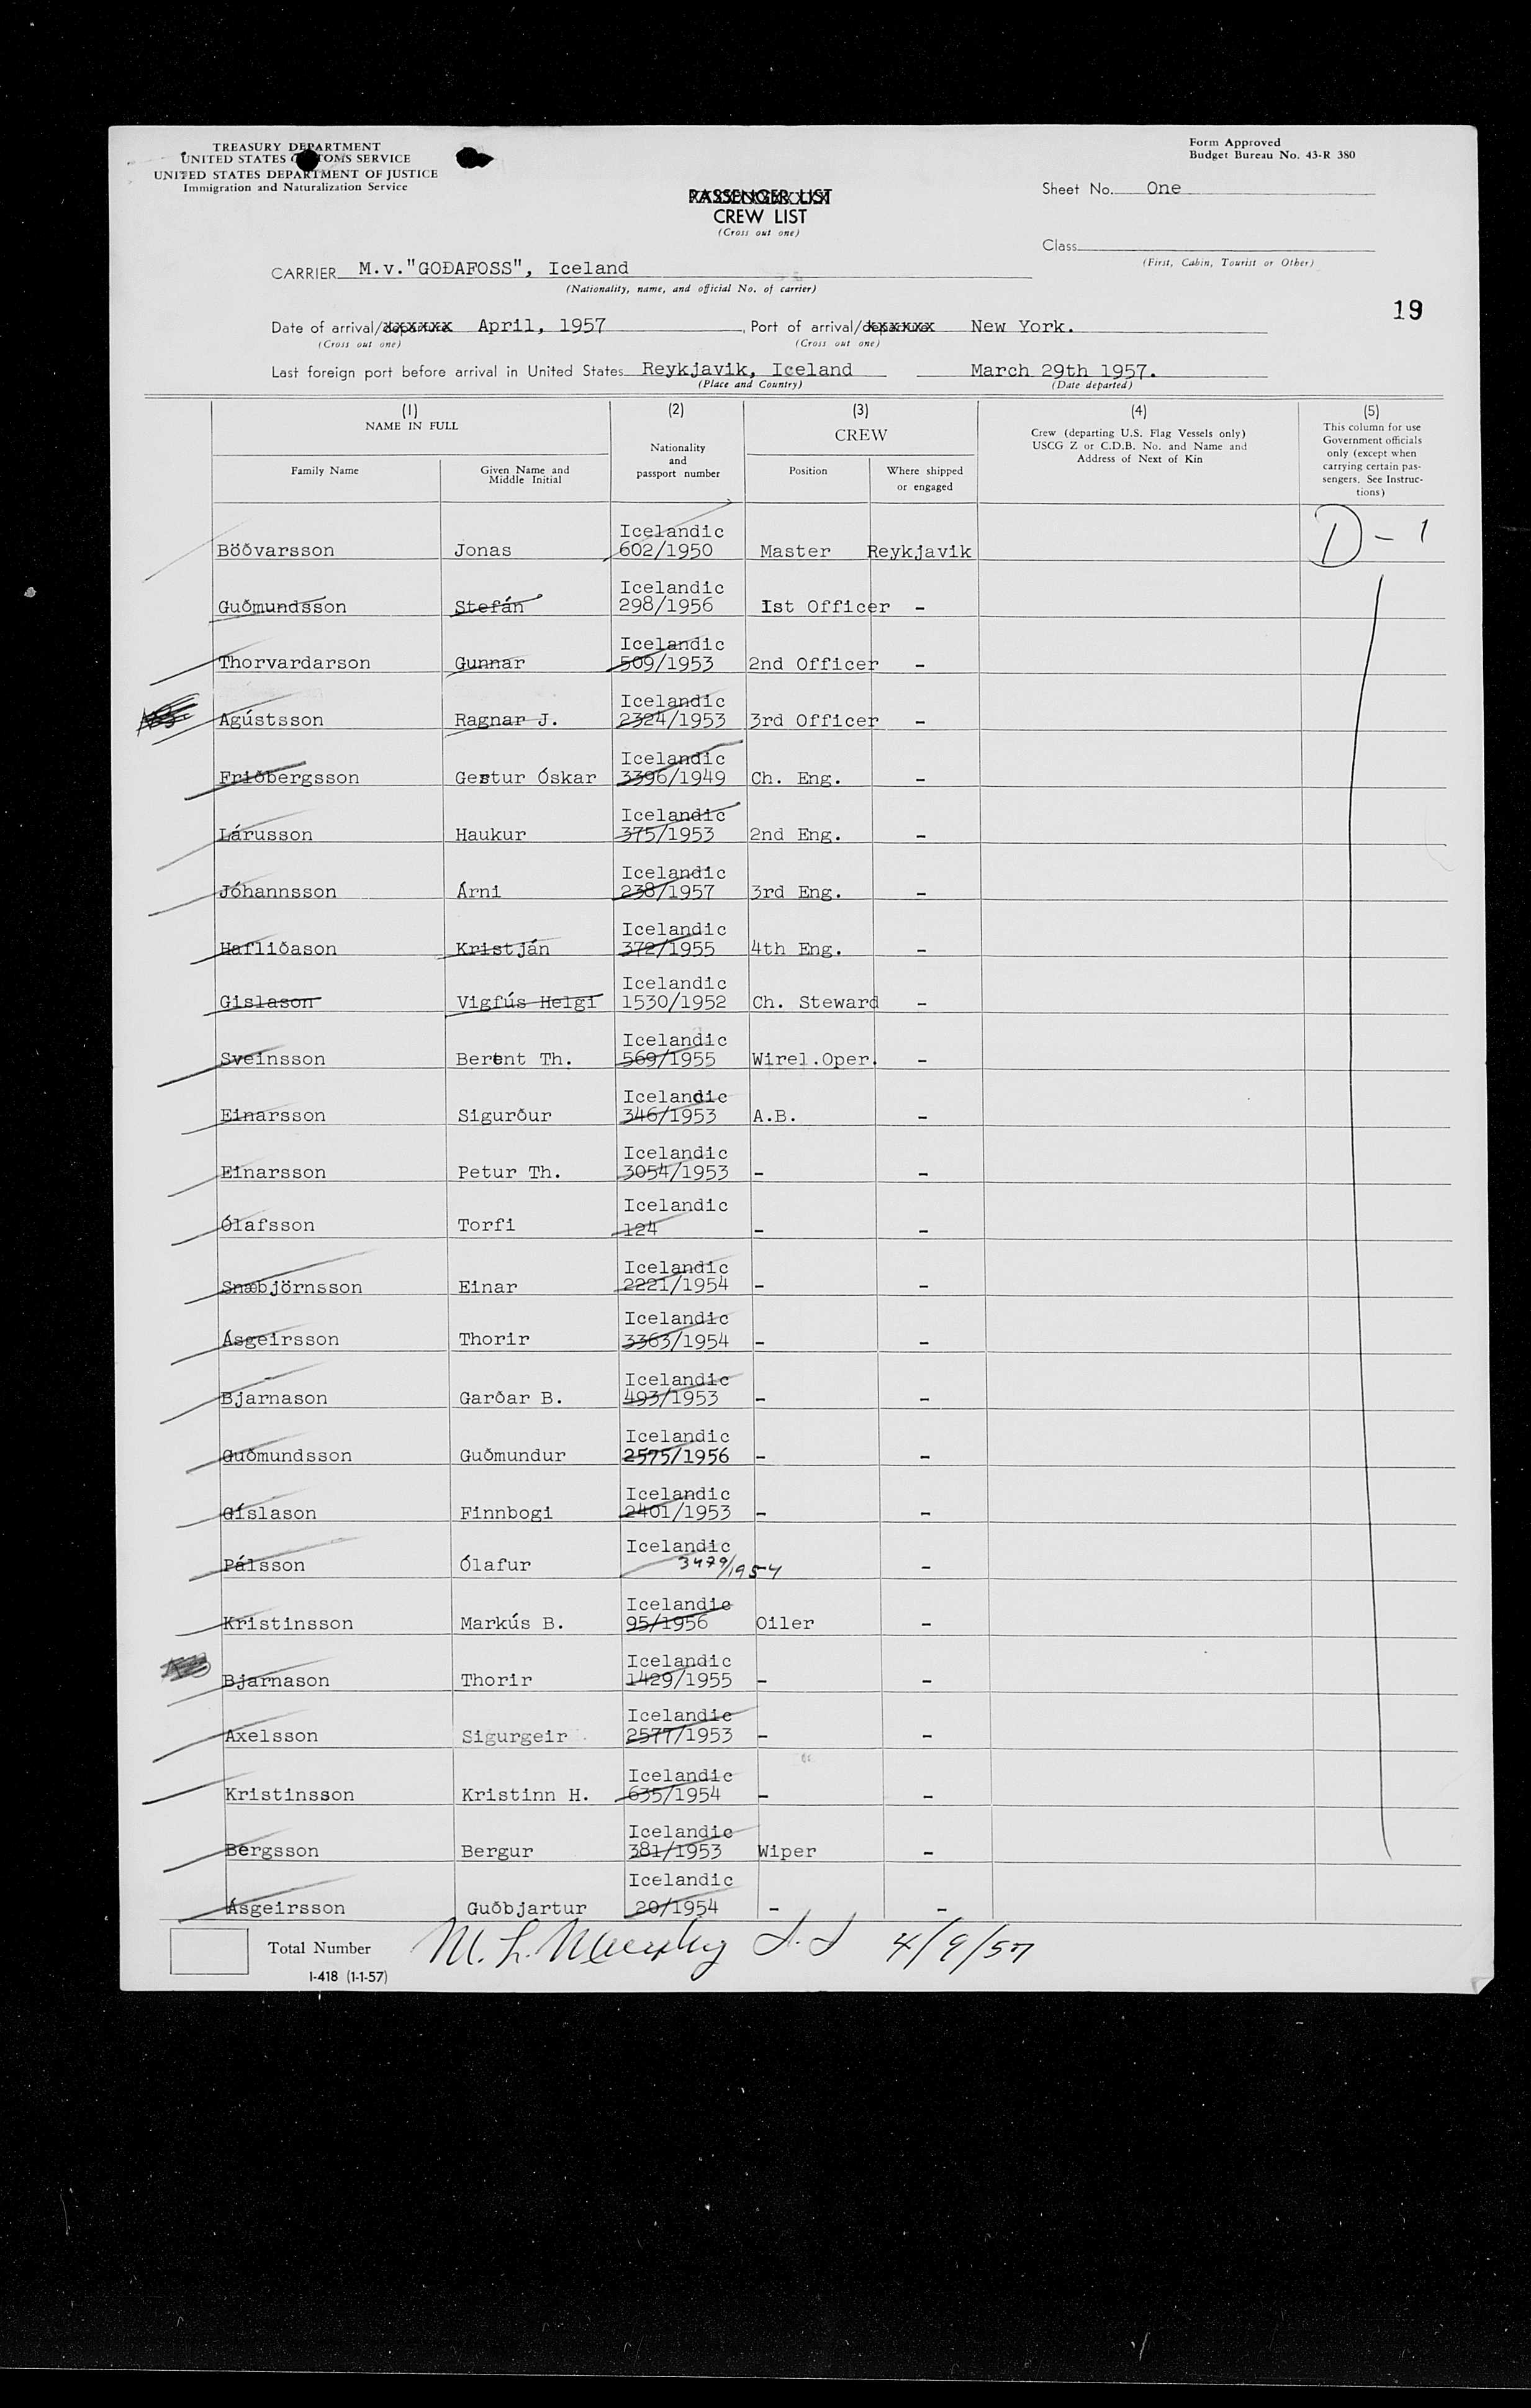 TREASURY DEPARTMENT
UNITED STATES CUSTOMS SERVICE
UNITED STATES DEPARTMENT OF JUSTICE
Immigration and Naturalization Service
Form Approved
Budget Bureau No. 43-R 380
PASSENGER LIST
CREW LIST
(Cross out one)
Sheet No. One
Class
(First, Cabin, Tourist or Other)
CARRIER M.v."GOÐAFOSS", Iceland
(Nationality, name, and official No. of carrier)
19
Date of arrival/departure April, 1957, Port of arrival/departure New York.
(Cross out one) (Cross out one)
Last foreign port before arrival in United States Reykjavik, Iceland March 29th 1957.
(Place and Country) (Date departed)
(1) NAME IN FULL
Family Name
Given Name and Middle Initial
(2)
Nationality and passport number
(3)
CREW
Position
Where shipped or engaged
(4)
Crew (departing U.S. Flag Vessels only)
USCG Z or C.D.B. No. and Name and
Address of Next of Kin
(5)
This column for use
Government officials
only (except when
carrying certain pas-
sengers. See Instruc-
tions)
Icelandic
Böðvarsson Jonas 602/1950 Master Reykjavik D - 1
Icelandic
Guðmundsson Stefán 298/1956 Ist Officer -
Icelandic
Thorvardarson Gunnar 509/1953 2nd Officer -
Icelandic
Agústsson Ragnar J. 2324/1953 3rd Officer -
Icelandic
Friðbergsson Gestur Óskar 3396/1949 Ch. Eng. -
Icelandic
Lárusson Haukur 375/1953 2nd Eng. -
Icelandic
Jóhannsson Árni 238/1957 3rd Eng. -
Icelandic
Hafliðason Kristján 372/1955 4th Eng. -
Icelandic
Gislason Vigfús Helgi 1530/1952 Ch. Steward -
Icelandic
Sveinsson Berent Th. 569/1955 Wirel.Oper. -
Icelandic
Einarsson Sigurður 346/1953 A.B. -
Icelandic
Einarsson Petur Th. 3054/1953 - -
Icelandic
Ólafsson Torfi 124 - -
Icelandic
Snæbjörnsson Einar 2221/1954 - -
Icelandic
Ásgeirsson Thorir 3363/1954 - -
Icelandic
Bjarnason Garðar B. 493/1953 - -
Icelandic
Guðmundsson Guðmundur 2575/1956 - -
Icelandic
Gíslason Finnbogi 2401/1953 - -
Icelandic
Pálsson Ólafur 3479/1954 -
Icelandic
Kristinsson Markús B. 95/1956 Oiler -
Icelandic
Bjarnason Thorir 1429/1955 - -
Icelandic
Axelsson Sigurgeir 2577/1953 - -
Icelandic
Kristinsson Kristinn H. 635/1954 - -
Icelandic
Bergsson Bergur 381/1953 Wiper -
Icelandic
Ásgeirsson Guðbjartur 20/1954 - -
Total Number
M. L. Murphy 4/9/57
I-418 (1-1-57)